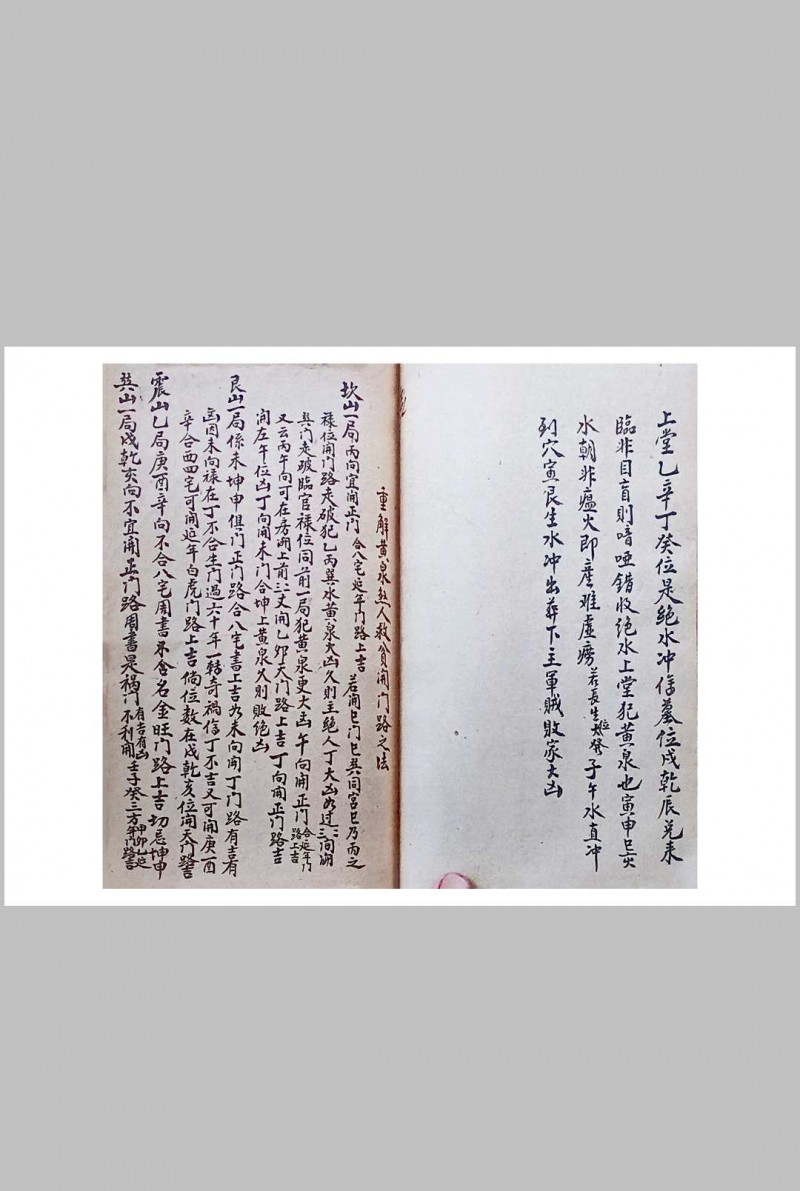 上堂乙辛丁癸位是絶水冲俻墓位戍乾辰兑来
臨非目盲則喑啞錯收绝水上堂犯黄泉也寅申巳亥
水朝非瘟火即産难虚痨若長生位發子午水直冲
到穴寅艮生水冲出葬下主軍賊敗家大凶
重解黄泉煞人救貧開门路之法
坎山一局丙向宜開正门合八宅延年门路上吉若開巳门巳巽同宫巳乃丙之
禄位開门路走破犯乙丙巽水黄泉大凶久则主绝人丁大凶如过二三间開
巽门走破臨官禄位同前一局犯黄泉更大凶午向開正门合延年门路上吉
又云丙午向可在房湖上前三丈開乙卯天门路上吉丁向開正门路吉
開左午位凶丁向開未门合坤上黄泉久則敗绝凶
艮山一局係未坤申俱门正门路合八宅書上吉如未向開丁门路有吉有
凶因未向禄在丁不合生门過六十年一轉奇祸俻丁不吉又可開庚一酉
辛合西四宅可開延年白虎门路上吉倘位数在戍乾亥位開天门路吉
震山乙局庚酉辛向不合八宅周書不含名金旺门路上吉切忌坤申
巽山一局戍乾亥向不宜開正门路周書是祸门有吉有凶不利開壬子癸三方甲卯乙延年门路吉